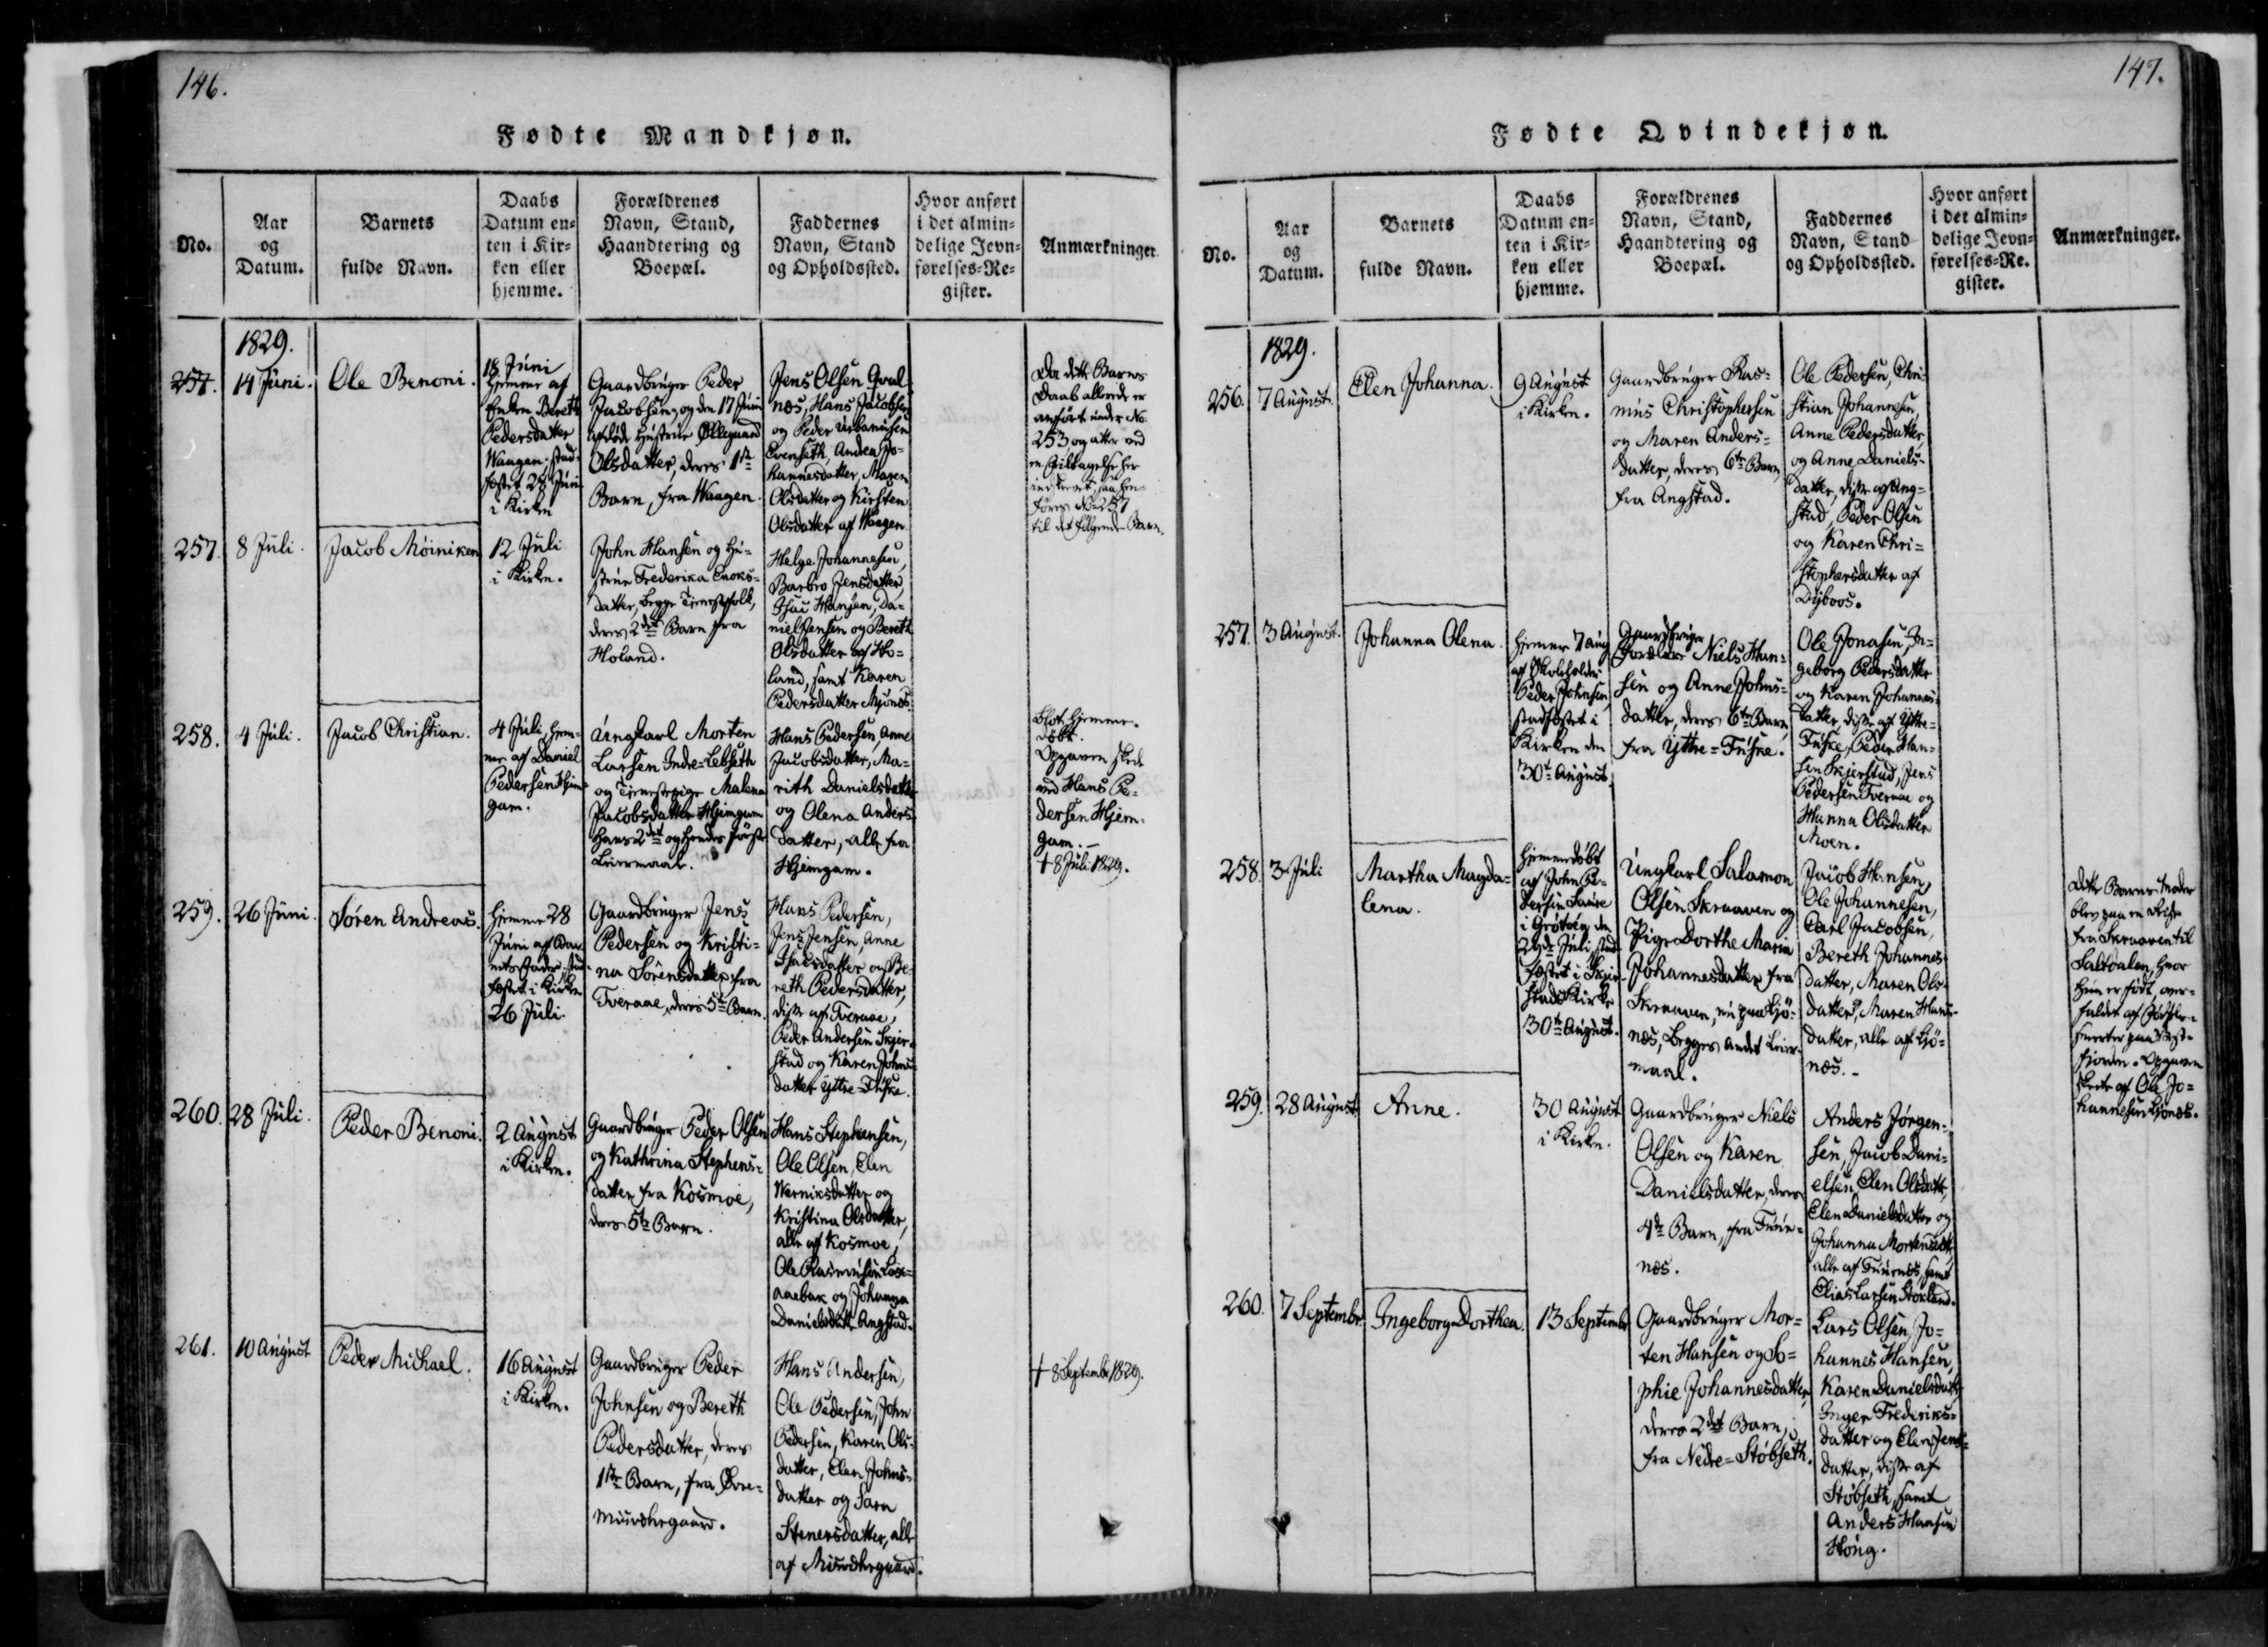 146.
Fødte Mandkjøn.
No.
Aar
og
Datum.
Barnets
fulde Navn.
Daabs
Datum en-
ten i Kir-
ken eller
hjemme.
Forældrenes
Navn, Stand,
Haandtering og
Boepæl.
Faddernes
Navn, Stand
og Opholdssted.
Hvor anført
i det almin-
delige Jevn-
førelses-Re-
gister.
Anmærkninger.
1829.
257.
14 Juni.
Ole Benoni.
18 Juni
hjemme af
Enken Bereth
Pedersdatter
Waagen. stad-
fæstet 28 Juni
i Kirken
Gaardbruger Peder
Jacobsen og den 17 Juni
afdøde Hustrue Øllegaard
Olsdatter, deres 1ste
Barn, fra Waagen.
Jens Olsen
næs, Hans Jacobsen
og Peder Urbanusen
Evenseth, Andea Jo-
hannesdatter, Maren
Olsdatter og Kirsten
Olsdatter af Waagen.
Da dette Barns
Daab allerede er
anført under No
253 og atter ved
en Feiltagelse her
indført, saa hen-
føres No 257
til det følgende Barn.
257.
8 Juli.
Jacob Möiniken
12 Juli
i Kirken.
John Hansen og Hu-
strue Frederika Enoks-
datter, begge Tjenestefolk,
deres 2det Barn fra
Holand.
Helge Johannesen,
Barbro Jensdatter,
Isac Hansen, Da-
niel Jensen og Bereth
Olsdatter af Ho-
land, samt Karen
Pedersdatter Mjönes.
258.
4 Juli.
Jacob Christian.
4 Juli, hjem-
me af Daniel
Pedersen Hjem-
gam.
Ungkarl Morten
Larsen Indre-Lebseth
og Tjenestepige Malena
Jacobsdatter Hjemgam
Hans 2det og hendes første
Leiermaal.
Hans Pedersen, Anne
Jacobsdatter, Ma-
rith Danielsdatter
og Olena Anders-
datter, alle fra
Hjemgam.
Blot hjemme-
döbt.
Opgaven skede
ved Hans Pe-
dersen Hjem-
gam.-
+ 8 Juli 1829.
259.
26 Juni.
Sören Andreas.
hjemme 28
Juni af Bar-
nets Fader, stad-
fæstet i Kirken
26 Juli.
Gaardbruger Jens
Pedersen og Kristi-
na Sörensdatter fra
Tveraae, deres 5te Barn.
Hans Pedersen,
Jens Jensen, Anne
Isacsdatter og Be-
reth Pedersdatter,
disse af Tveraae,
Peder Andersen Skjer-
stad og Karen Johns-
datter Yttre-Fuske.
260.
28 Juli.
Peder Benoni.
2 August
i Kirken.
Gaardbruger Peder Olsen
og Kathrina Stephens-
datter fra Kosmoe,
deres 5te Barn.
Hans Stephensen,
Ole Olsen, Elen
Werniksdatter og
Kristina Olsdatter,
alle af Kosmoe,
Ole Rasmusen Lax-
aaebak og Johanna
Danielsdattr Angstad.
261.
10 August
Peder Michael.
16 August
i Kirken.
Gaardbruger Peder
Johnsen og Bereth
Pedersdatter, deres
1ste Barn, fra Övre-
Misvehrgaard.
Hans Andersen,
Ole Pedersen, John
Pedersen, Karen Ols-
datter, Elen Johns-
datter og Sara
Stenersdatter, alle
af Misvehrgaard.
+ 8 Septembr 1829.
147.
Fødte Qvindekjøn.
No.
Aar
og
Datum.
Barnets
fulde Navn.
Daabs
Datum en-
ten i Kir-
ken eller
hjemme.
Forældrenes
Navn, Stand,
Haandtering og
Boepæl.
Faddernes
Navn, Stand
og Opholdssted.
Hvor anført
i det almin-
delige Jevn-
førelses-Re-
gister.
Anmærkninger.
1829.
256.
7 August.
Elen Johanna.
9 August
i Kirken.
Gaardbruger Ras-
mus Christophersen
og Maren Anders-
datter, deres 6te Barn,
fra Angstad.
Ole Pedersen, Chri-
stian Johannesen,
Anne Pedersdatter,
og Anne Daniels-
datter, disse af Ang-
stad, Peder Olsen
og Karen Chri-
stophersdatter af
Dyboos.
257.
3 August.
Johanna Olena.
hjemme 7 Aug
af Skoleholder
Peder Johnsen,
stadfæstet i
Kirken den
30te August.
Gaardbruger
Niels Han-
sen og Anne Johns-
datter, deres 6te Barn,
fra Yttre-Fuske.
Ole Jonasen, In-
geborg Pedersdatter
og Karen Johannes-
datter, disse af Yttre-
Fuske, Peder Han-
sen Skjerstad, Jens
Pedersen Tveraae og
Hanna Olsdatter
Moen.
258.
3 Juli
Martha Magda-
lena.
hjemmedöbt
af John Pe-
dersen
i Grötöen den
Juli, stad-
fæstet i Skjer-
stads Kirke
30te August.
Ungkarl Salamon
Olsen Skraaven og
Pige Dorthe Maria
Johannesdatter fra
Skraaven, nu paa Ljö-
næs, Begges andet Leier-
maal.
Jacob Hansen,
Ole Johannesen,
Carl Jacobsen,
Bereth Johannes-
datter, Maren Ols-
datter, Maren Hans-
datter, alle af Ljö-
næs.-
Dette Barns Moder
blev paa en Reise
fra Skraaven til
Saltdalen, hvor
hun er født, over-
faldet af Födsels-
smerter paa Vest-
fjorden. Opgaven
skede af Ole Jo-
hannesen Ljönæs.
259.
28 August
Anne.
30 August
i Kirken.
Gaardbruger Niels
Olsen og Karen
Danielsdatter, deres
4de Barn, fra Fuur-
næs.
Anders Jørgen-
sen, Jacob Dani-
elsen, Elen Olsdattr,
Elen Danielsdatter og
Johanna Mortensdtr,
alle af Fuurnæs, samt
Elias Larsen Storland.
260.
7 Septembr.
Ingeborg Dorthea.
13 Septembr
Gaardbruger Mor-
ten Hansen og So-
phie Johannesdatter,
deres 2det Barn,
fra Nedre-Stöbseth.
Lars Olsen, Jo-
hannes Hansen,
Karen Danielsdattr,
Inger Frederiks-
datter og Elen Jens-
datter, disse af
Stöbseth, samt
Anders Hansen
Houg.